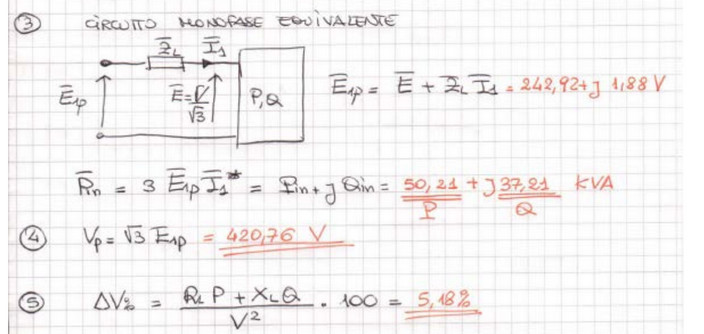 ③ CIRCUITO MONOFASE EQUIVALENTE
Z̅L I̅1
E̅1p E̅=V̅/√3 P,Q E̅1p = E̅ + Z̅L I̅1 = 242,92+j 1,88 V
P̅in = 3 E̅1p I̅1* = Pin + j Qin = 50,21 + j 37,21 KVA
P Q
④ Vp = √3 E1p = 420,76 V
⑤ ΔV% = (RL P + XL Q)/V² · 100 = 5,18%